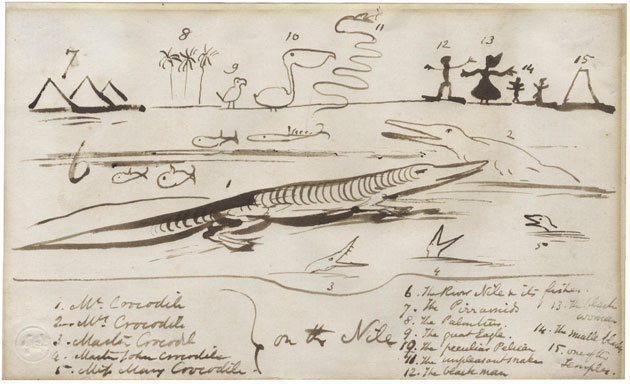 7
8
9
10
11
12
13
14
15
6
1
2
3
4
5
1. Mr. Crocodile
2. Mrs Crocodile
3. Master Crocodile
4. Master John Crocodile
5. Miss Mary Crocodile.
on the Nile
6. The River Nile & its fishes
7. The Pirramids
8. The Palmtrees
9. The great Eagle
10. The peculiar Pelican
11. The unpleasant snake
12. The black man
13. The black woman
14. The small blacks
15. one of the Temples